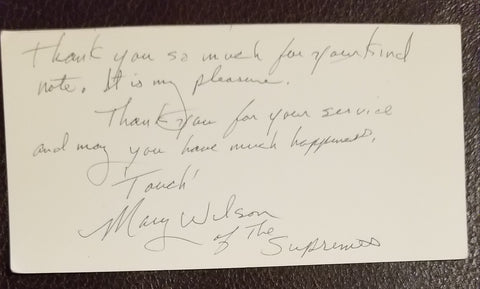 Thank you so much for your kind
note. It is my pleasure.
Thank you for your service
and may you have much happiness.
'Touch'
Mary Wilson
of The
Supremes